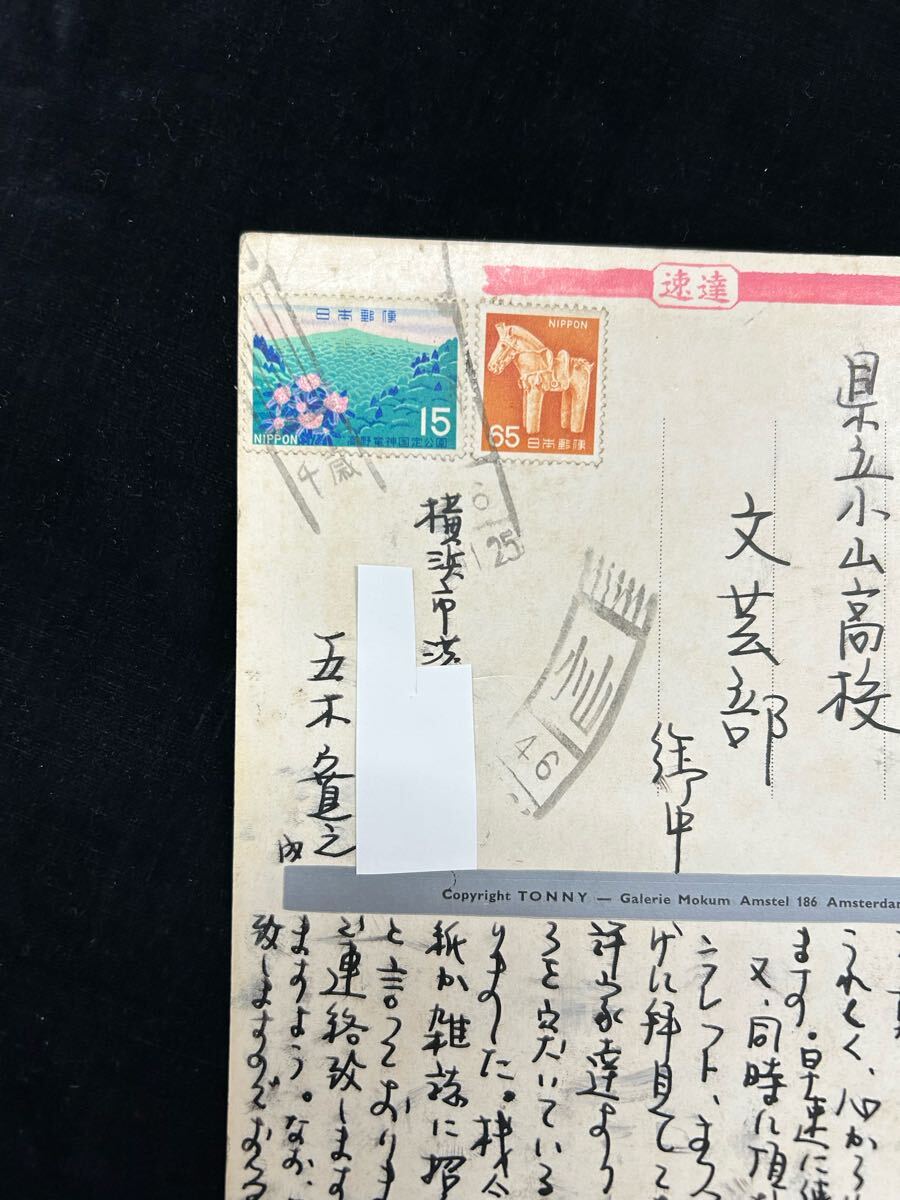 速達
日本郵便
15
NIPPON
高野竜神国定公園
NIPPON
65 日本郵便
千歳
25
46
県立小山高校
文芸部
御中
横浜市
五木寛之
内
Copyright TONNY — Galerie Mokum Amstel 186 Amsterda
うれしく、心から
ます。早速に
又、同時に頂
ラフト、ま
げに拝見して
評家達より
ろを突いている
りました。機会
紙か雑誌に紹
と言っておりま
ご連絡致します
ますよう。なお、
致しますのでおる